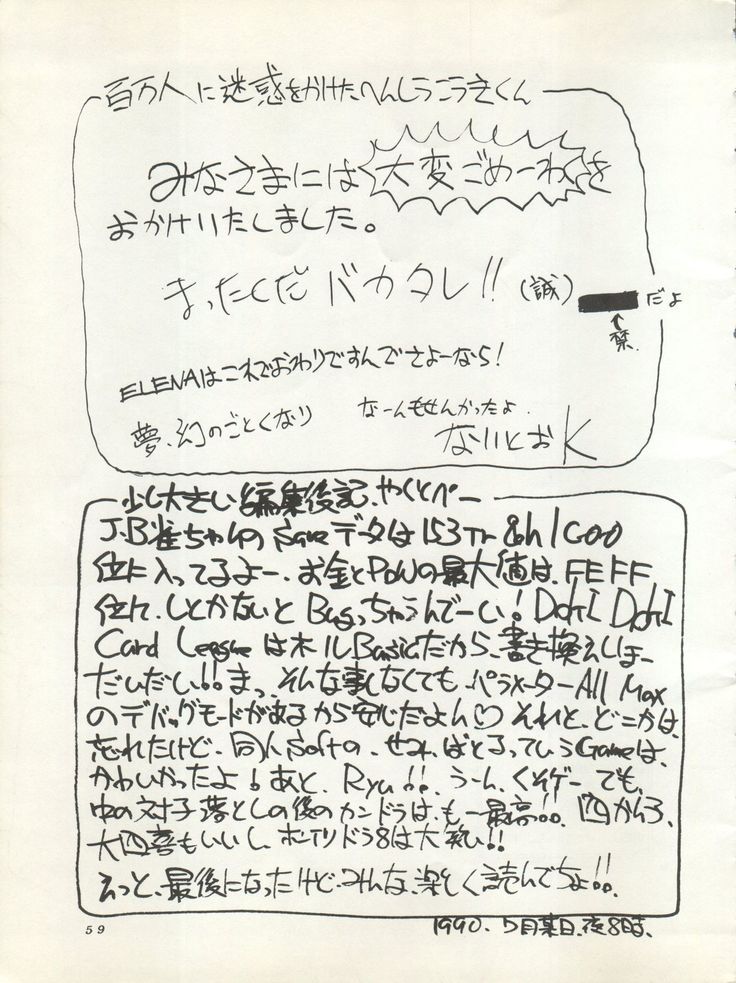 百万人に迷惑をかけたへんしうこうきくん
みなさまには大変ごめーわくを
おかけいたしました。
まったくだ バカタレ!! (誠)
だよ
↑
禁.
ELENAはこれでおわりですんでさよーなら!
夢、幻のごとくなり
なーんもせんかったよ.
ないとおK
少し大きい編集後記、やくとぺー
J.B雀ちゃんのSaveデータは153Tr &h1C00
位に入ってるよー、お金とPowの最大値は、FEFF
位に、しとかないとBugっちゃうんでーい!
Card LeagueはホルBasicだから、書き換えしほー
だいだい!!まっ、そんな事しなくても、パラメーターAll Max
のデバッグモードがあるから安心だよん♡ それと、どこかは、
忘れたけど、同人Softの、せみ、ばとるっていうGameは、
かわいかったよ!あと、Ryu!!、うーん、くそゲーでも、
中の対子落としの後のカンドラは、も一最高!!、四かんつ、
大四喜もいいし、ホンイツドラ8は大笑い!!
えっと、最後になったけど、みんな、楽しく読んでちょ!!.
1990. 7月某日、夜8時、
59